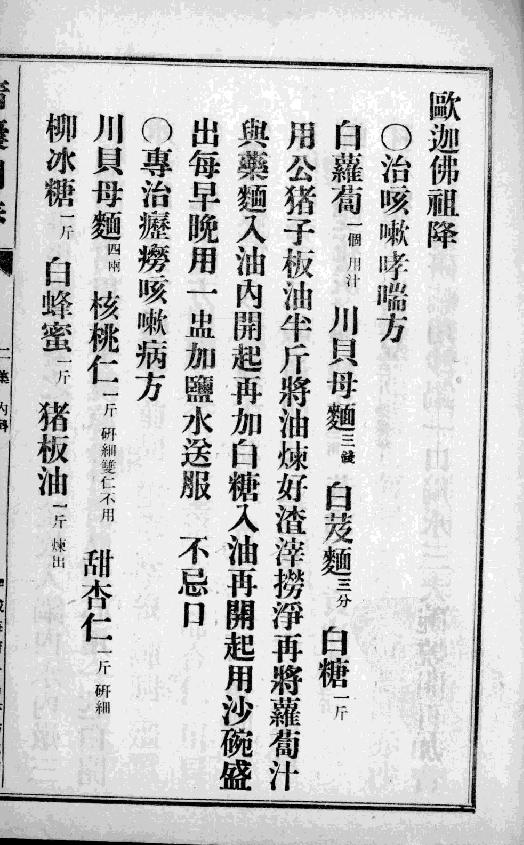 歐迦佛祖降
○治咳嗽哮喘方
白蘿蔔一個用汁 川貝母麵三錢 白芨麵三分 白糖一斤
用公猪子板油半斤將油煉好渣滓撈淨再將蘿蔔汁
與藥麵入油內開起再加白糖入油再開起用沙碗盛
出每早晚用一盅加鹽水送服 不忌口
○專治癧癆咳嗽病方
川貝母麵四兩 核桃仁一斤研細雙仁不用 甜杏仁一斤研細
柳冰糖一斤 白蜂蜜一斤 猪板油一斤煉出